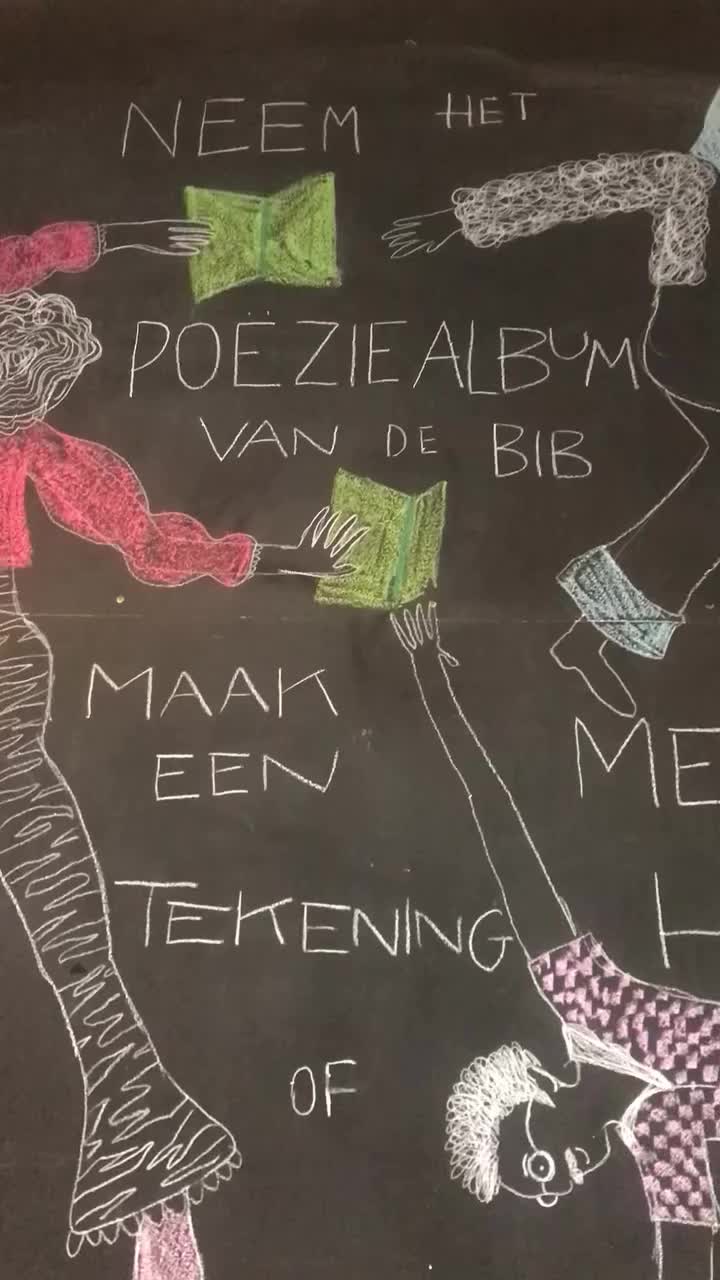 NEEM HET
POËZIEALBUM
VAN DE BIB
MAAK
EEN
TEKENING
OF
ME
H